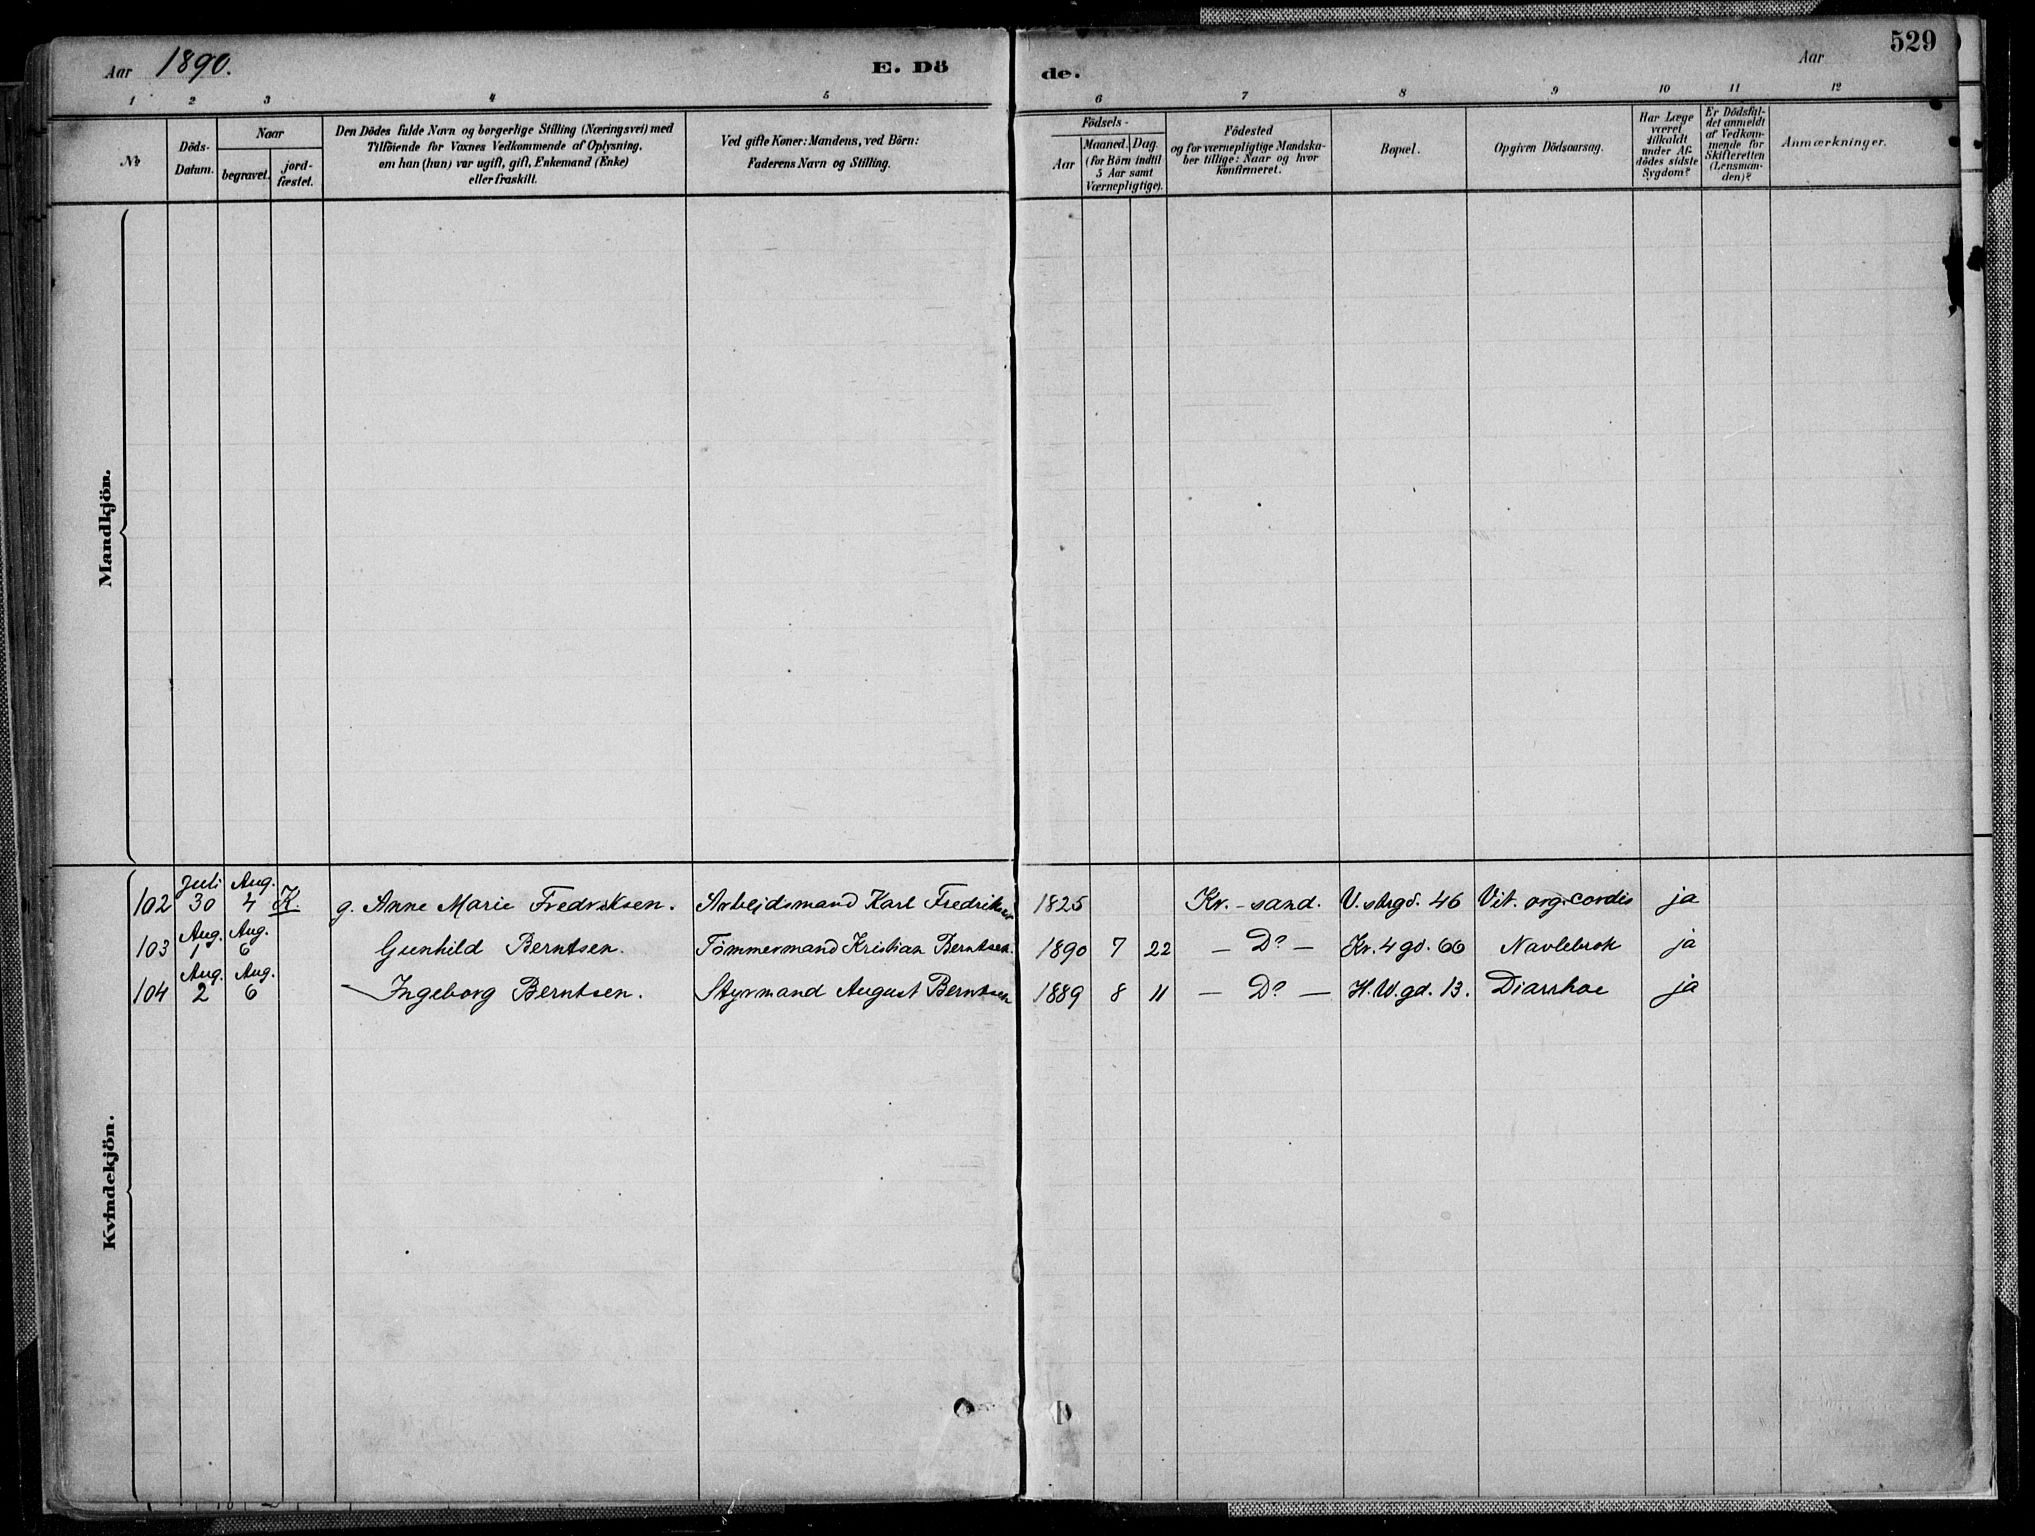 Aar 1890. E. Dö de. Aar 529
1 2 3 4 5 6 7 8 9 10 11 12
No
Döds-
Datum.
Naar
begravet.
jord-
fæstet.
Den Dödes fulde Navn og borgerlige Stilling (Næringsvei) med
Tilföiende for Voxnes Vedkommende af Oplysning,
om han (hun) var ugift, gift, Enkemand (Enke)
eller fraskilt.
Ved gifte Koner: Mandens, ved Börn:
Faderens Navn og Stilling.
Födsels-
Aar
Maaned. Dag.
(for Börn indtil
5 Aar samt
Værnepligtige).
Födested
og for værnepligtige Mandska-
ber tillige: Naar og hvor
konfirmeret.
Bopæl.
Opgiven Dödsaarsag.
Har Læge
været
tilkaldt
under Af-
dödes sidste
Sygdom?
Er Dödsfal-
det anmeldt
af Vedkom-
mende for
Skifteretten
(Lensman-
den)?
Anmærkninger.
Mandkjön.
Kvindekjön.
102 Juli 30 Aug. 4 K. g. Anne Marie Fredriksen. Arbeidsmand Karl Fredriksen 1825 Kr.-sand. V. strgd. 46 Vit. org. cordis ja
103 Aug. 1 Aug. 6 Gunhild Berntsen. Tømmermand Kristian Berntsen. 1890 7 22 — Do — Kv. 4 gd. 66 Navlebrok ja
104 Aug. 2 Aug. 6 — Ingeborg Berntsen. Styrmand August Berntsen 1889 8 11 — Do — H.W.gd. 13. Diarrhoe ja